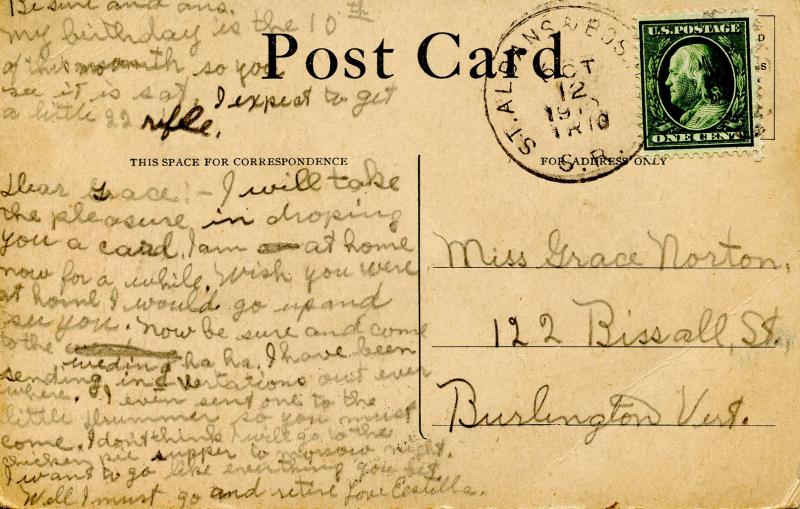 Be sure and ans.
My birthday is the 10th
of this month so you
see it is sat. I expect to get
a little 22 rifle.
Post Card
ST. ALBANS & BOS.
OCT
12
TR 10
S.R.
U.S. POSTAGE
ONE CENT
THIS SPACE FOR CORRESPONDENCE
FOR ADDRESS ONLY
Dear Grace:- I will take
the pleasure in droping
you a card. I am at home
now for a while. Wish you were
at home I would go up and
see you. Now be sure and come
to the
weding ha ha. I have been
sending invertations out ever
where. I even sent one to the
little drummer so you must
come. I don't think I will go to the
chicken pie supper to morrow night.
I want to go like everthing you bet.
Well I must go and retire Love Eestella.
Miss Grace Norton,
122 Bissall, St.,
Burlington Vert.